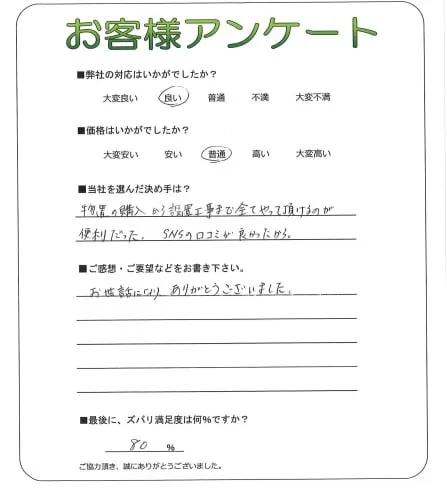 お客様アンケート
■弊社の対応はいかがでしたか?
大変良い 良い 普通 不満 大変不満
■価格はいかがでしたか?
大変安い 安い 普通 高い 大変高い
■当社を選んだ決め手は?
物置の購入から設置工事まで全てやって頂けるのが
便利だった。 SNSの口コミが良かったから。
■ご感想・ご要望などをお書き下さい。
お世話になり ありがとうございました。
■最後に、ズバリ満足度は何%ですか?
80 %
ご協力頂き、誠にありがとうございました。